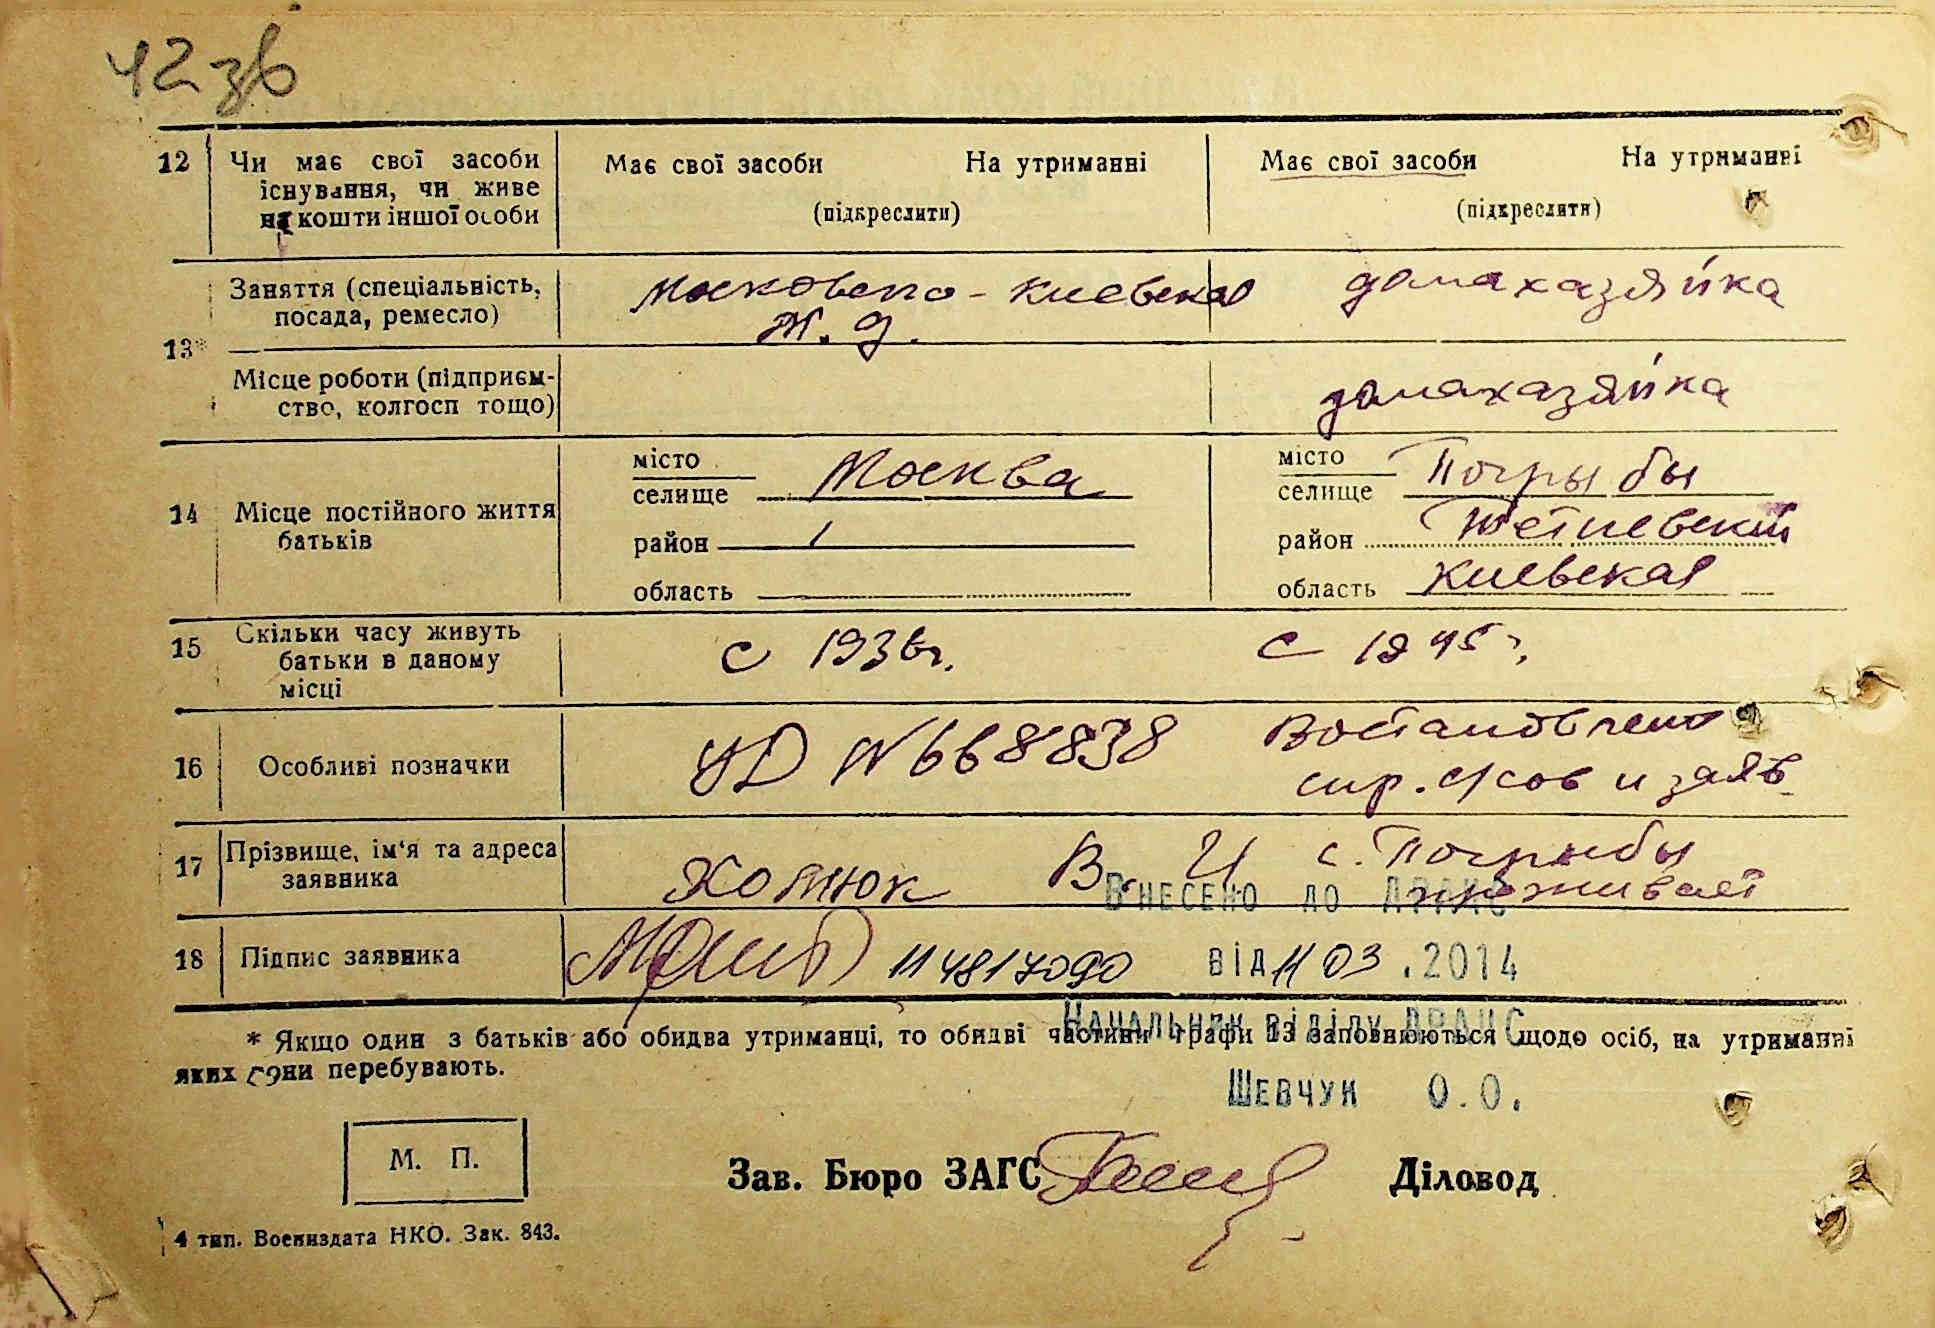 42 зв
12 Чи має свої засоби існування, чи живе на кошти іншої особи
Має свої засоби На утриманні
(підкреслити)
Має свої засоби На утриманні
(підкреслити)
13*
Заняття (спеціальність, посада, ремесло)
Московско-Киевская
Ж. д.
домахазяйка
Місце роботи (підприєм-
ство, колгосп тощо)
домахазяйка
14 Місце постійного життя батьків
місто
селище Москва
район
область
місто
селище Погрыбы
район Тетиевский
область Киевская
15 Скільки часу живуть батьки в даному місці
с 1936г.
с 1945 г.
16 Особливі позначки
УД № 668838
Востановлено
спр. с/сов и заяв.
17 Прізвище, ім'я та адреса заявника
Хотюк В. И с. Погрыбы
проживает
Внесено до ДРАЦС
18 Підпис заявника
114817090
від 11 03 .2014
Начальник відділу ДРАЦС
* Якщо один з батьків або обидва утриманці, то обидві частини графи 13 заповнюються щодо осіб, на утриманні
яких вони перебувають.
Шевчук О.О.
М. П.
Зав. Бюро ЗАГС
Діловод
4 тип. Воениздата НКО. Зак. 843.